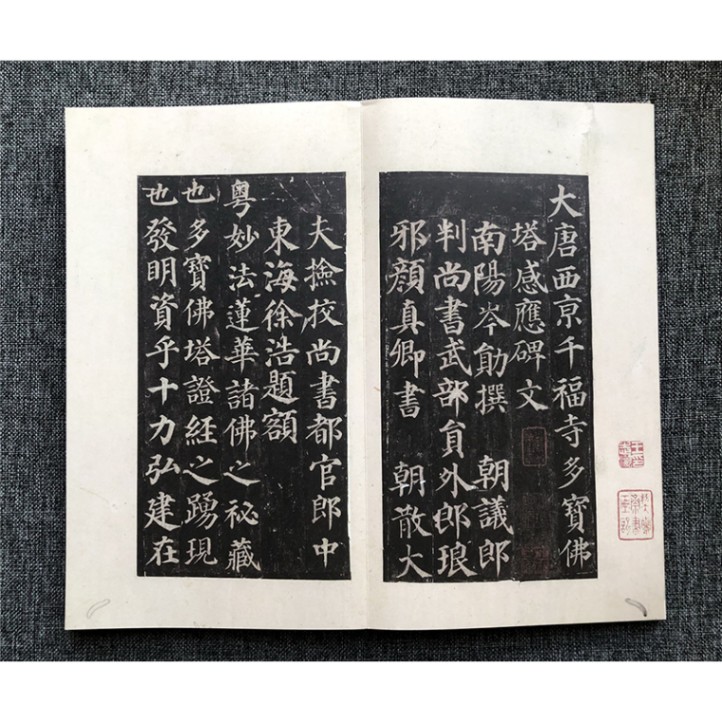 大唐西京千福寺多寶佛
塔感應碑文
南陽岑勛撰 朝議郎
判尚書武部貟外郎琅
邪顏真卿書 朝散大
夫撿挍尚書都官郎中
東海徐浩題額
粵妙法蓮華諸佛之祕藏
也多寶佛塔證經之踴現
也發明資乎十力弘建在